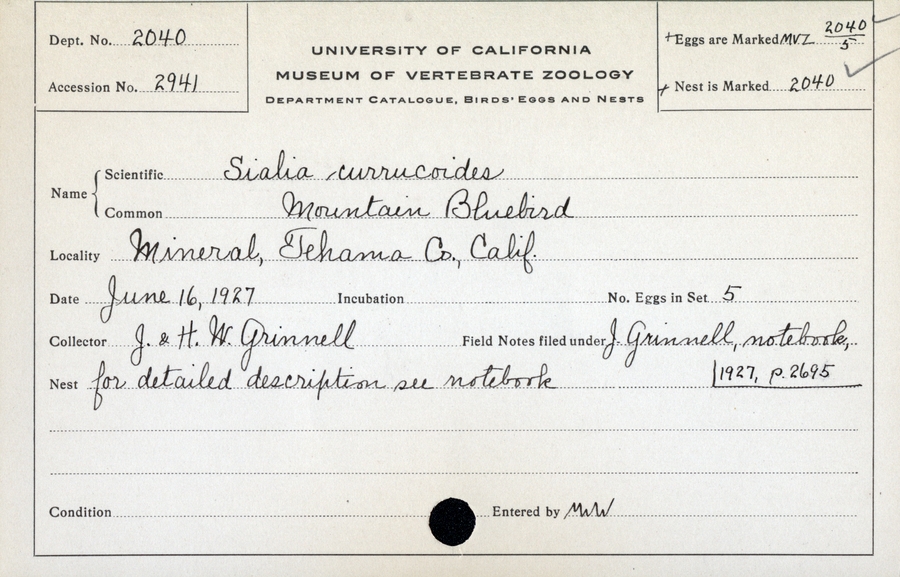 Dept. No. 2040
Accession No. 2941
UNIVERSITY OF CALIFORNIA
MUSEUM OF VERTEBRATE ZOOLOGY
DEPARTMENT CATALOGUE, BIRDS' EGGS AND NESTS
+Eggs are Marked MVZ 2040/5
+ Nest is Marked 2040
Name
Scientific Sialia currucoides
Common Mountain Bluebird
Locality Mineral, Tehama Co., Calif.
Date June 16, 1927 Incubation No. Eggs in Set 5
Collector J. & H. W. Grinnell Field Notes filed under J. Grinnell, notebook,
Nest for detailed description see notebook 1927, p. 2695
Condition Entered by MWW